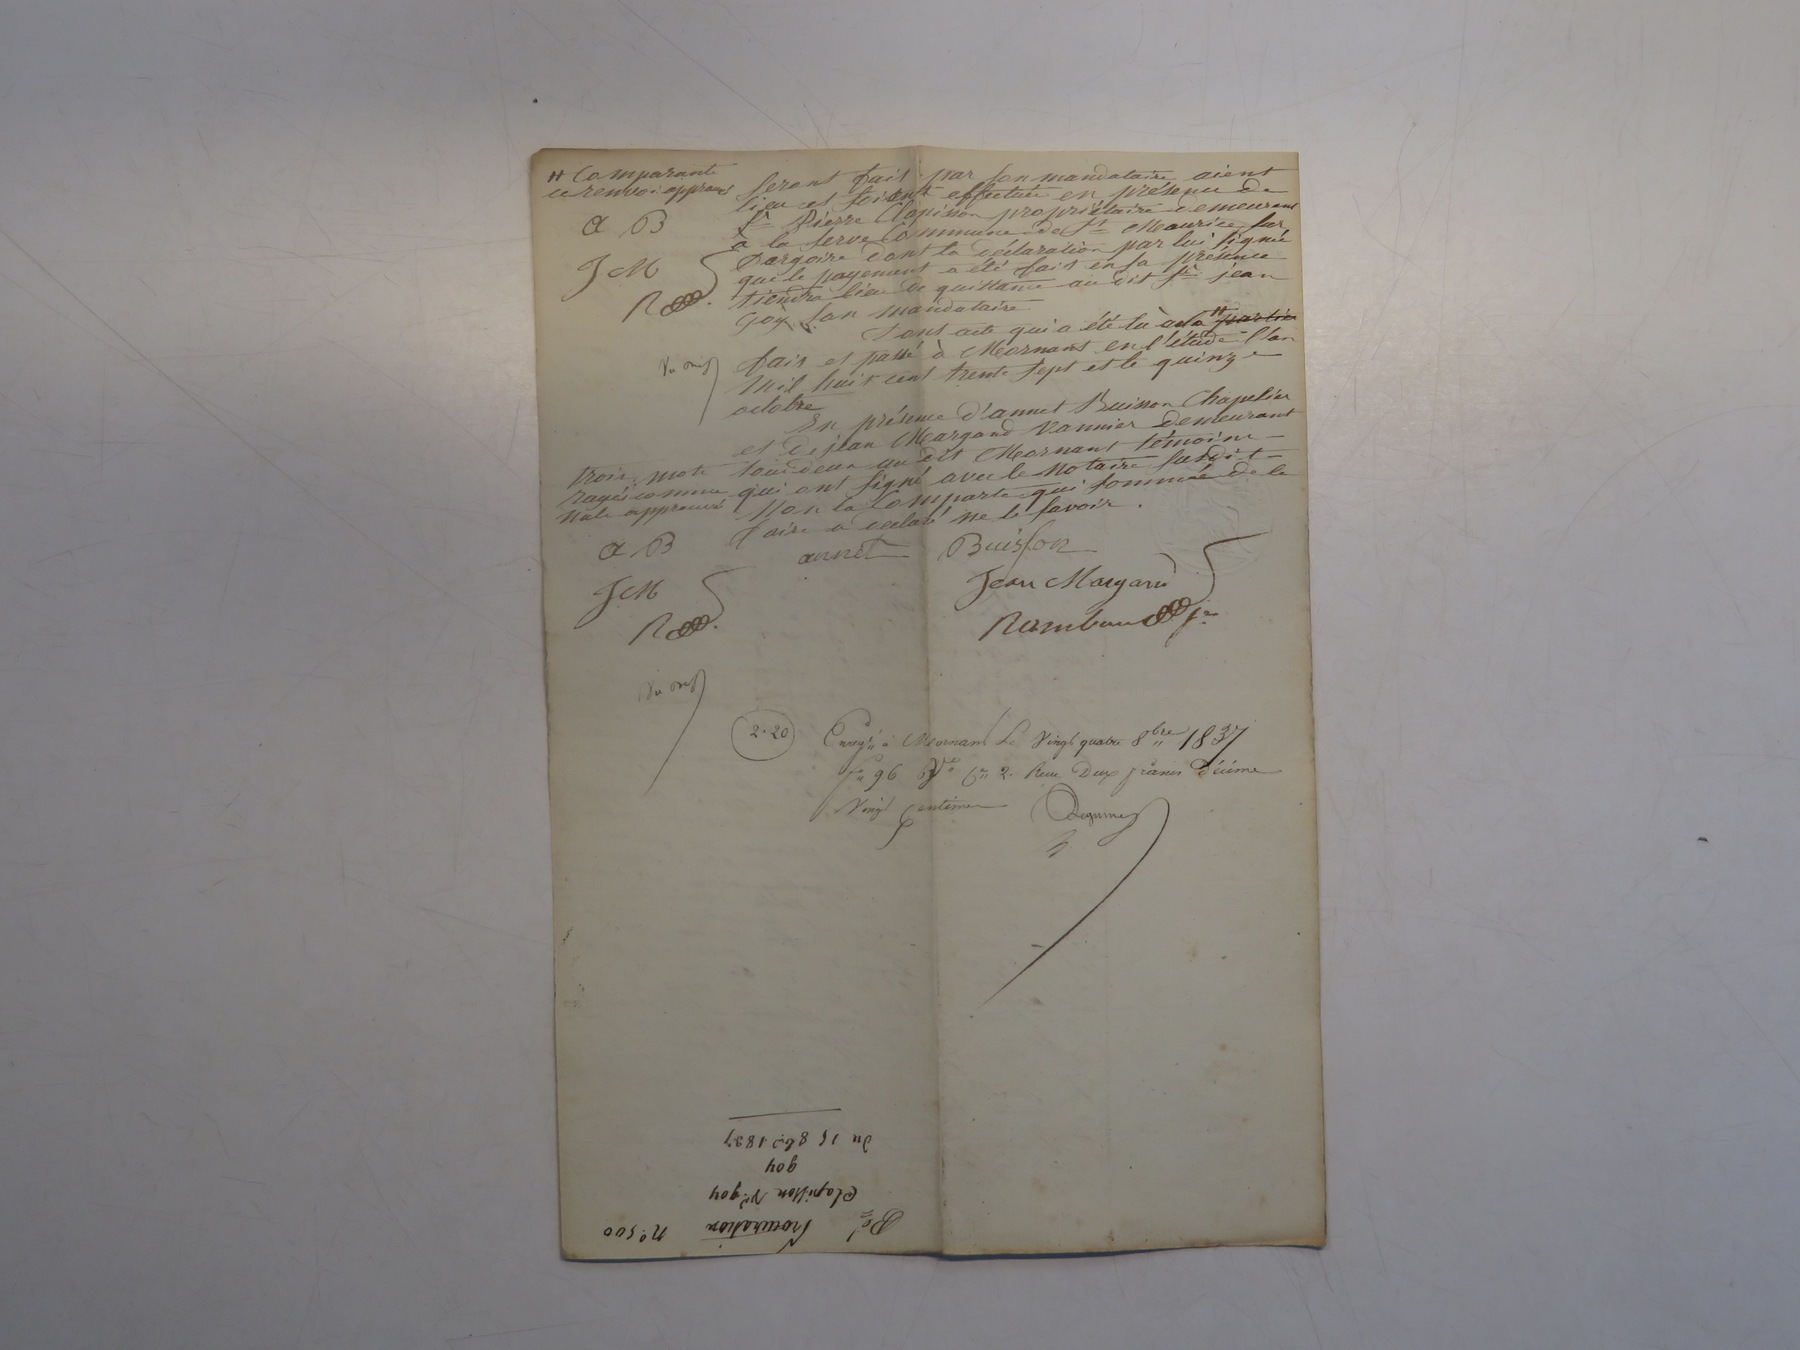 # Comparante
ce renvoi approuvé
A B
J M
R
seront fais par son mandataire aient
lieu et soient effectués en présence de
Sr Pierre Clapisson propriétaire demeurant
à la serve Commune de St Maurice sur
dargoire dont la déclaration par lui signée
que le payement a été fait en sa présence
tiendra lieu de quittance au dit Sr jean
goy son mandataire
Dont acte qui a été lu à la # parties
fais et passé à Mornant en l'étude l'an
Mil huit cent trente sept et le quinze
octobre
En présence d'annet Buisson Chapelier
et de jean Margand vannier demeurant
tous deux au dit Mornant témoins
qui ont signé avec le Notaire susdit
Non la Comparte qui sommée de le
faire a déclaré ne le savoir.
trois mots
rayés comme
nuls approuvé
A B
J M
R
annet Buisson
Jean Margand
Rambaud
2.20
Enregé à Mornant Le Vingt quatre 8bre 1837
fo 96 Vo Ce 2. Reçu Deux francs Décime
Vingt Centimes
No 500
Procuration
Clapisson Ve goy
goy
du 15 8bre 1837